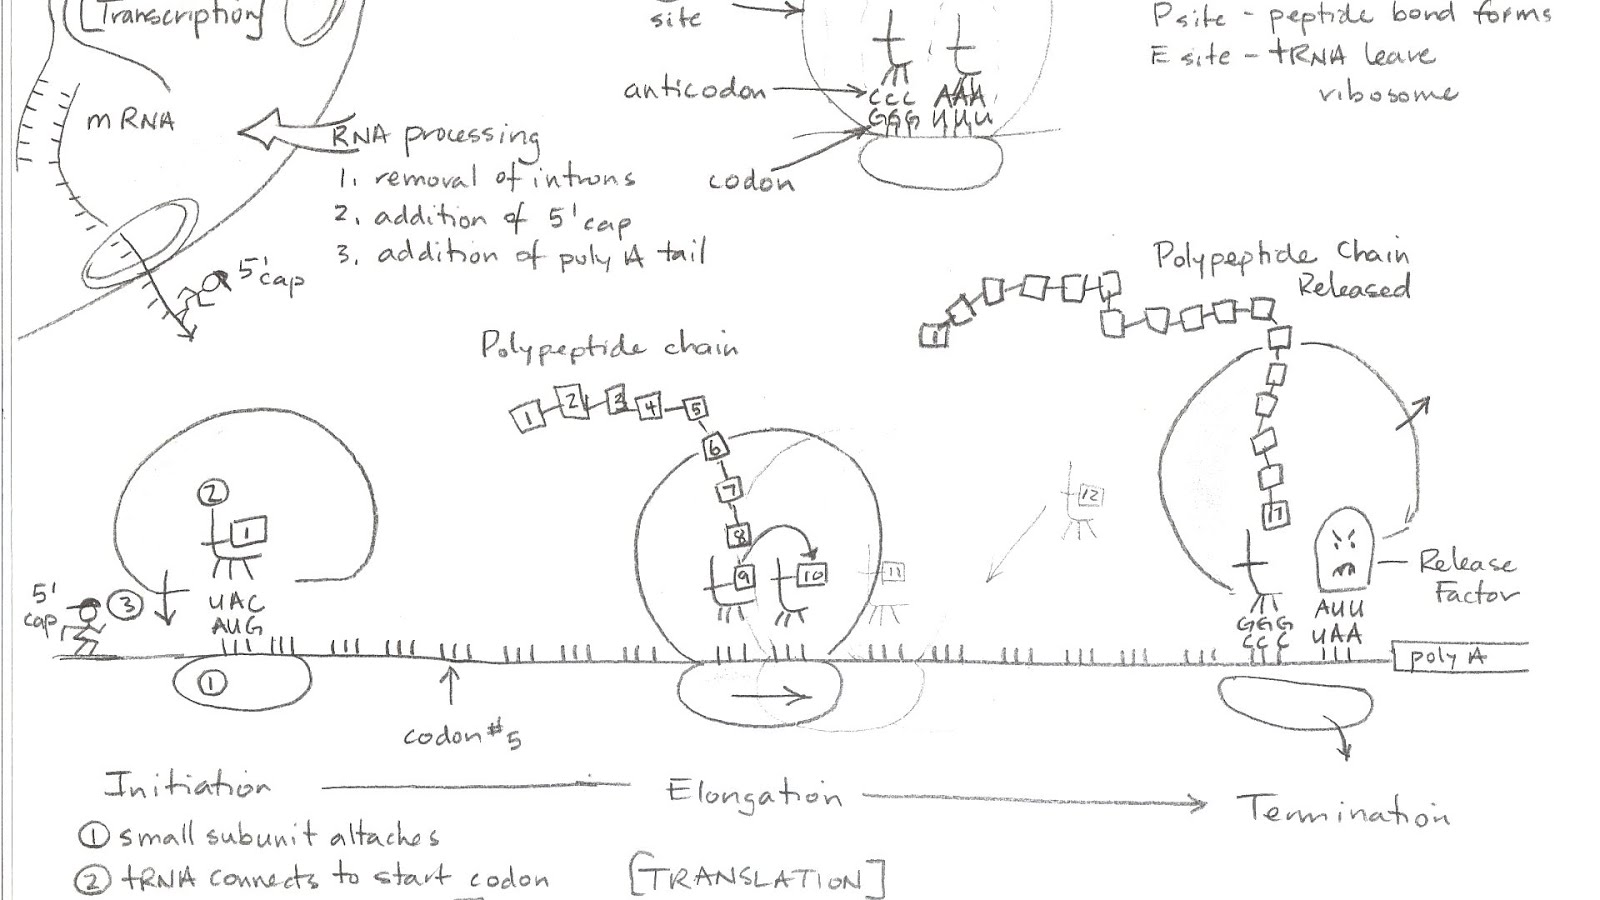 [Transcription]
site
P site - peptide bond forms
E site - tRNA leave
ribosome
anticodon
CCC AAA
GGG UUU
codon
mRNA
RNA processing
1. removal of introns
2. addition of 5' cap
3. addition of poly A tail
5' cap
Polypeptide chain
1 2 3 4 5
6
7
8
9 10
11
12
Polypeptide Chain
Released
1
17
Release
Factor
AUU
UAA
GGG
CCC
poly A
2
1
5'
cap
3
UAC
AUG
1
codon #5
Initiation
Elongation
Termination
1 small subunit attaches
2 tRNA connects to start codon
[TRANSLATION]